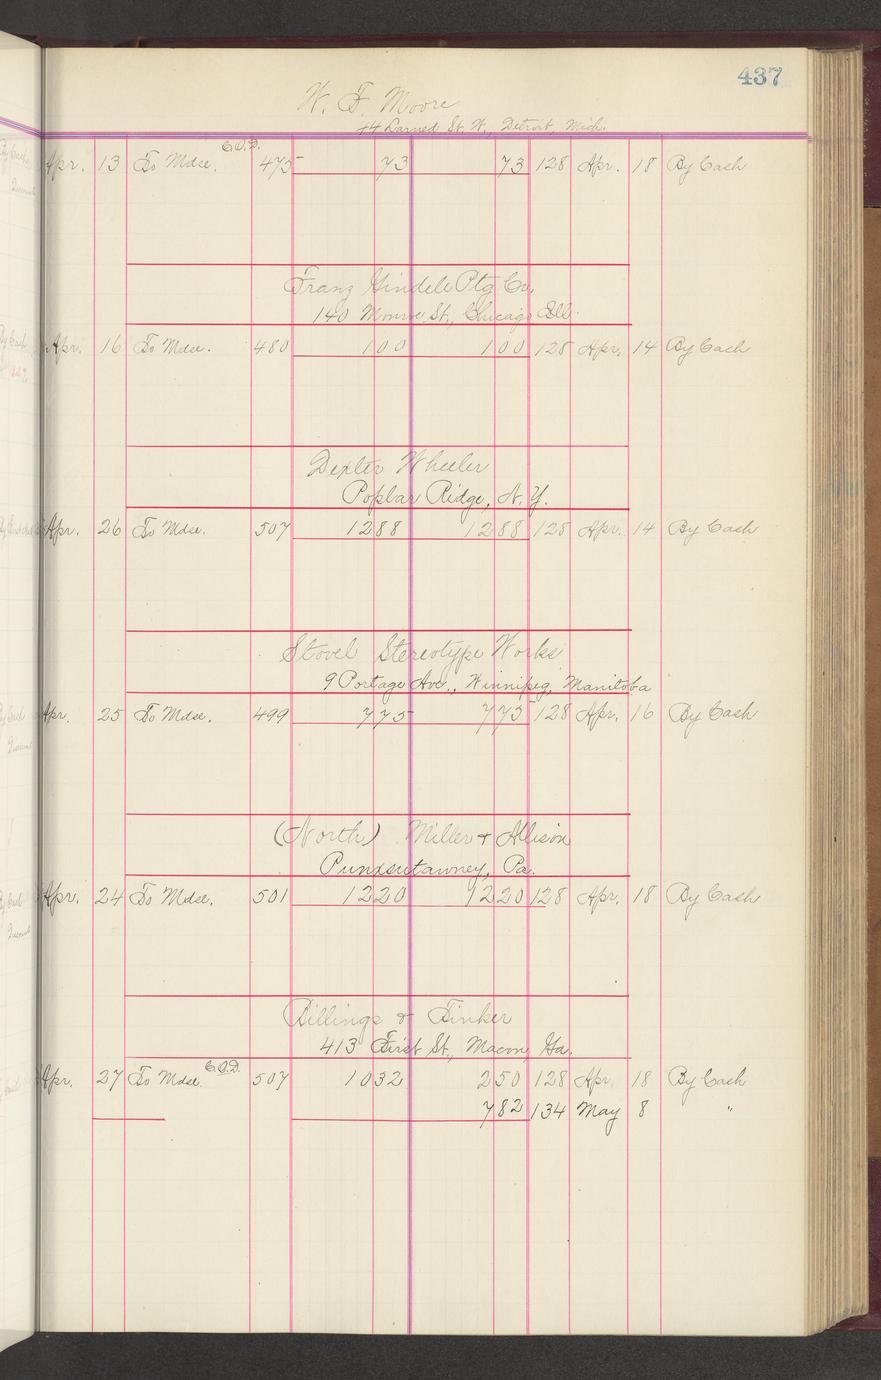 437
W. F. Moore
44 Larned St. W., Detroit, Mich.
Apr. 13 To Mdse. C.O.D. 475 73 73 128 Apr. 18 By Cash
Franz Gindele Ptg Co.
140 Monroe St., Chicago Ill.
Apr. 16 To Mdse. 480 100 100 128 Apr. 14 By Cash
Dexter Wheeler
Poplar Ridge, N. Y.
Apr. 26 To Mdse. 507 1288 1288 128 Apr. 14 By Cash
Stovel Stereotype Works
9 Portage Ave., Winnipeg, Manitoba
Apr. 25 To Mdse. 499 775 775 128 Apr. 16 By Cash
(North) Miller & Allison
Punxsutawney, Pa.
Apr. 24 To Mdse. 501 1220 1220 128 Apr. 18 By Cash
Billings & Tinker
413 First St., Macon, Ga.
Apr. 27 To Mdse. C.O.D. 507 1032 250 128 Apr. 18 By Cash
782 134 May 8 "